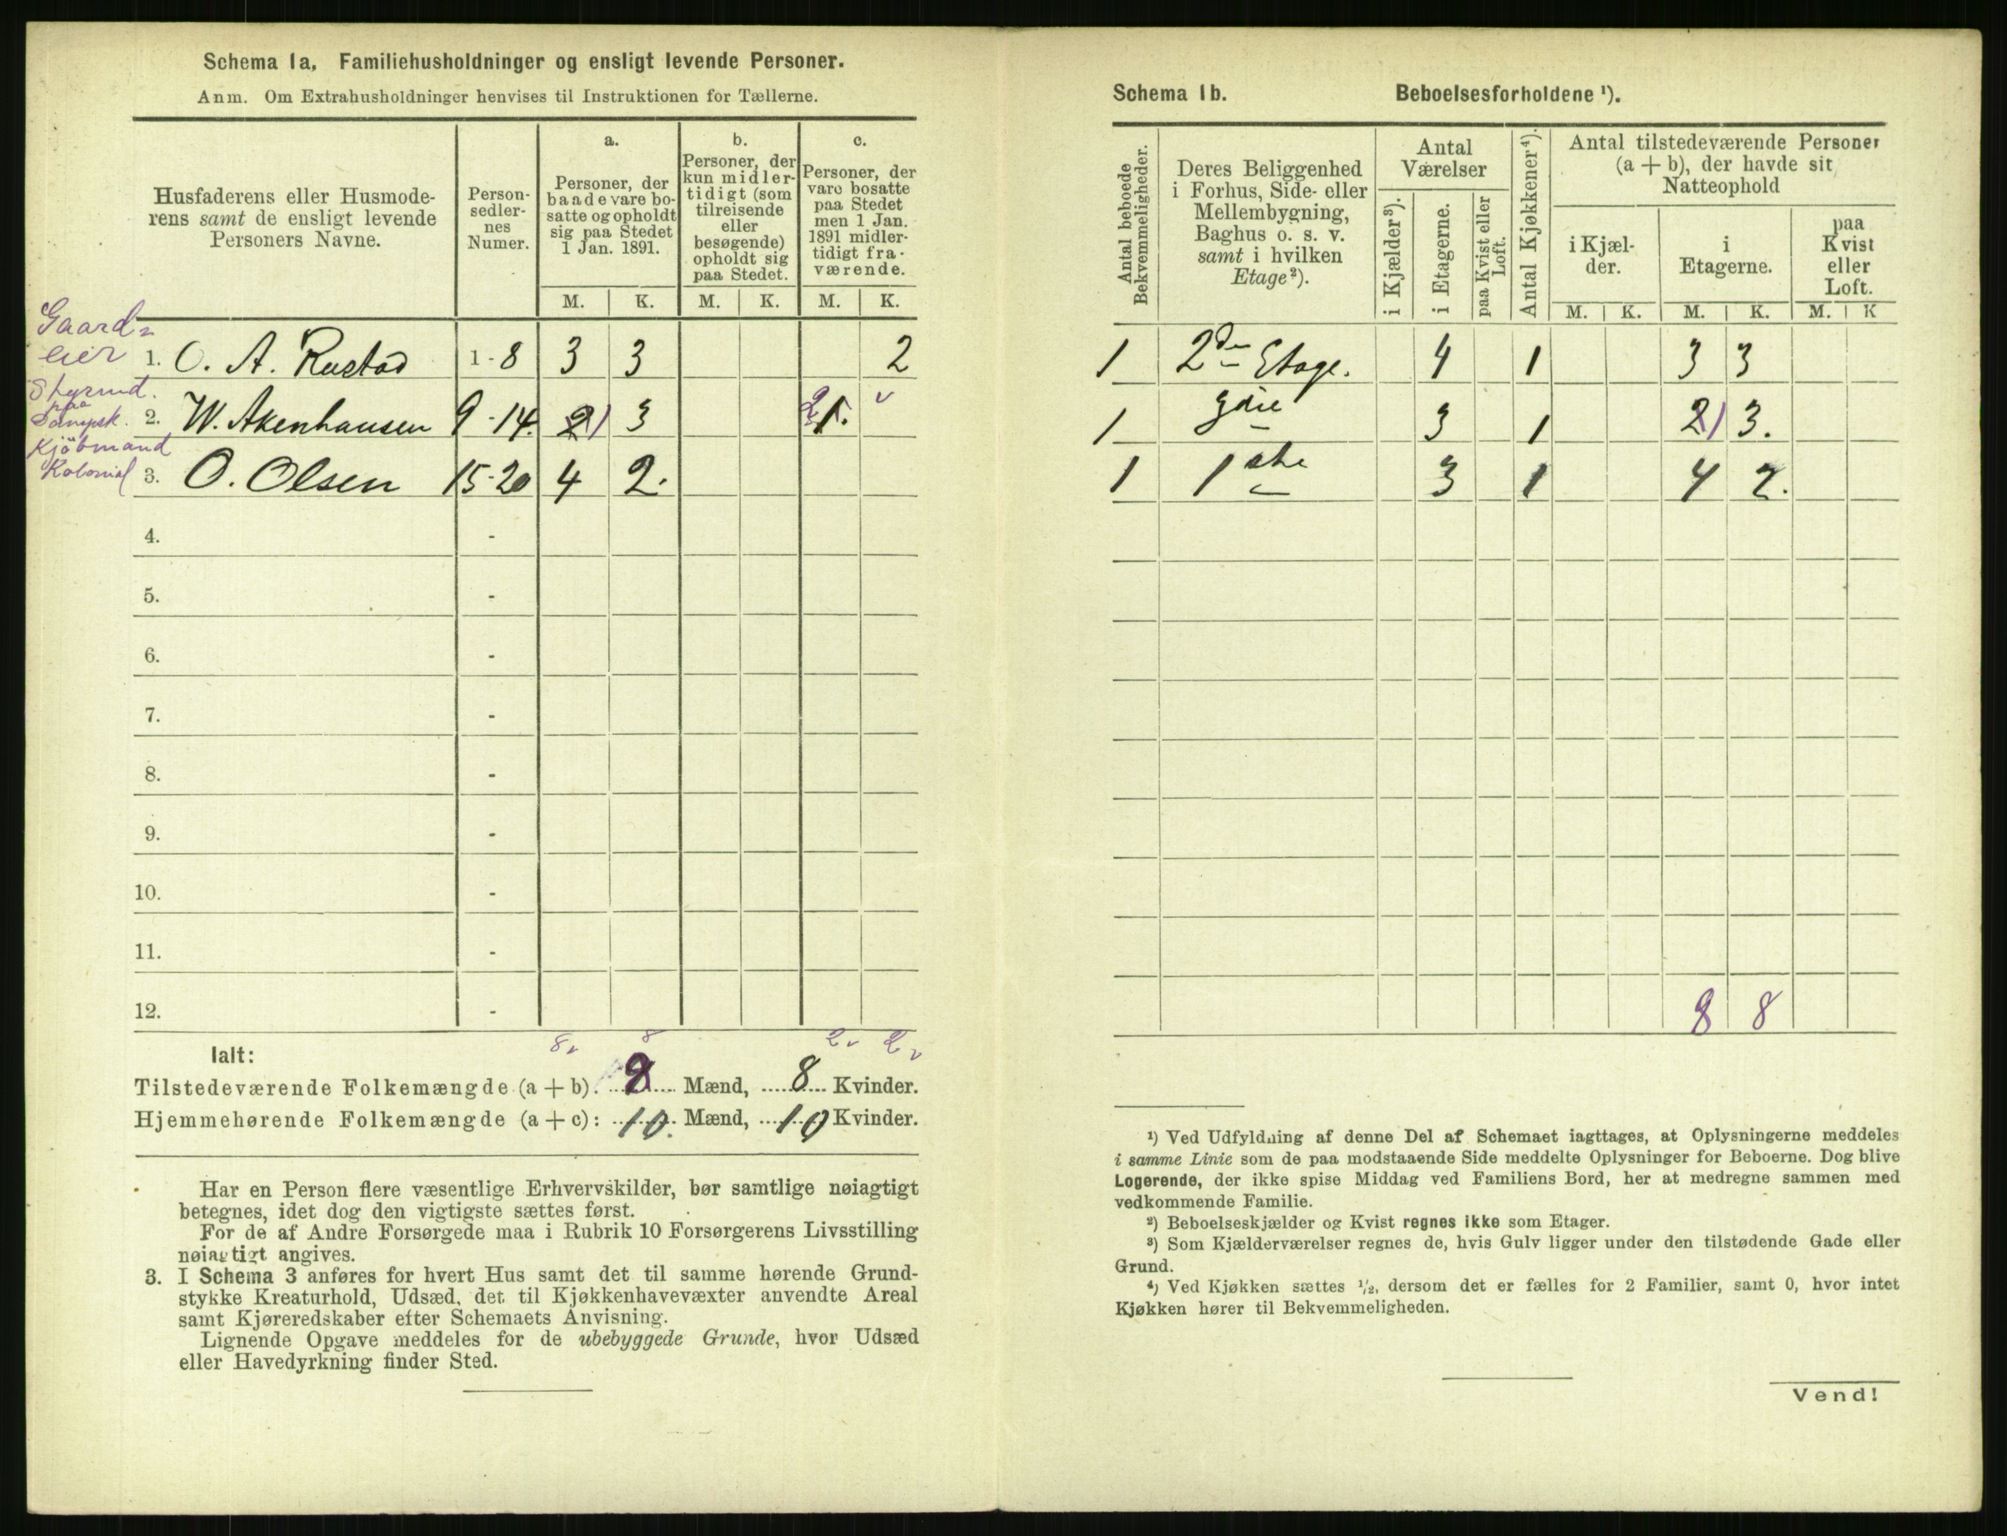 Schema 1a, Familiehusholdninger og ensligt levende Personer.
Anm. Om Extrahusholdninger henvises til Instruktionen for Tællerne.
Husfaderens eller Husmode-
rens samt de ensligt levende
Personers Navne.
Person-
sedler-
nes
Numer.
a.
Personer, der
baade vare bo-
satte og opholdt
sig paa Stedet
1 Jan. 1891.
b.
Personer, der
kun midler-
tidigt (som
tilreisende
eller
besøgende)
opholdt sig
paa Stedet.
c.
Personer, der
vare bosatte
paa Stedet
men 1 Jan.
1891 midler-
tidigt fra-
værende.
M. K. M. K. M. K.
Gaard-
eier 1. O. A. Rustad 1-8 3 3 2
Styrmd.
paa
Dampsk. 2. W. Akenhausen 9-14. 2 3 1.
Kjöbmand
Kolonial 3. O. Olsen 15-20 4 2.
4. -
5. -
6. -
7. -
8. -
9. -
10. -
11. -
12. -
8 8 2 2
Ialt:
Tilstedeværende Folkemængde (a + b): 8 Mænd, 8 Kvinder.
Hjemmehørende Folkemængde (a + c): 10. Mænd, 10 Kvinder.
Har en Person flere væsentlige Erhvervskilder, bør samtlige nøiagtigt
betegnes, idet dog den vigtigste sættes først.
For de af Andre Forsørgede maa i Rubrik 10 Forsørgerens Livsstilling
nøiagtigt angives.
3. I Schema 3 anføres for hvert Hus samt det til samme hørende Grund-
stykke Kreaturhold, Udsæd, det til Kjøkkenhavevæxter anvendte Areal
samt Kjøreredskaber efter Schemaets Anvisning.
Lignende Opgave meddeles for de ubebyggede Grunde, hvor Udsæd
eller Havedyrkning finder Sted.
Schema 1b. Beboelsesforholdene ¹).
Antal beboede
Bekvemmeligheder.
Deres Beliggenhed
i Forhus, Side- eller
Mellembygning,
Baghus o. s. v.
samt i hvilken
Etage²).
Antal
Værelser
i Kjælder³).
i Etagerne.
paa Kvist eller
Loft.
Antal Kjøkkener⁴).
Antal tilstedeværende Personer
(a + b), der havde sit
Natteophold
i Kjæl-
der.
i
Etagerne.
paa
Kvist
eller
Loft.
M. K. M. K. M. K
1 2den Etage. 4 1 3 3
1 3 1 2 3.
1 1ste 3 1 4 2.
8 8
¹) Ved Udfyldning af denne Del af Schemaet iagttages, at Oplysningerne meddeles
i samme Linie som de paa modstaaende Side meddelte Oplysninger for Beboerne. Dog blive
Logerende, der ikke spise Middag ved Familiens Bord, her at medregne sammen med
vedkommende Familie.
²) Beboelseskjælder og Kvist regnes ikke som Etager.
³) Som Kjælderværelser regnes de, hvis Gulv ligger under den tilstødende Gade eller
Grund.
⁴) Ved Kjøkken sættes ¹/₂, dersom det er fælles for 2 Familier, samt 0, hvor intet
Kjøkken hører til Bekvemmeligheden.
Vend!